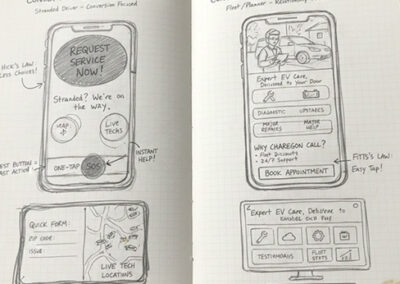 Stranded Driver - Conversion Focused
HICK'S LAW:
LESS CHOICES!
REQUEST
SERVICE
NOW!
Stranded? We're on
the way.
MAP
LIVE
TECHS
BUTTON =
FAST ACTION!
ONE-TAP
SOS
INSTANT
HELP!
QUICK FORM:
ZIP CODE
ISSUE
LIVE TECH
LOCATIONS
Fleet/Planner - Relationship
Expert EV Care,
Delivered to Your Door
DIAGNOSTIC
MAJOR
REPAIRS
MAJOR
HELP
WHY CHAREGON CALL?
• Fleet Discounts
• 24/7 Support
BOOK APPOINTMENT
FITTS'S LAW:
Easy Tap!
Expert EV Care, Deliverse to
TESTIMONIALS
FLEET
STATS